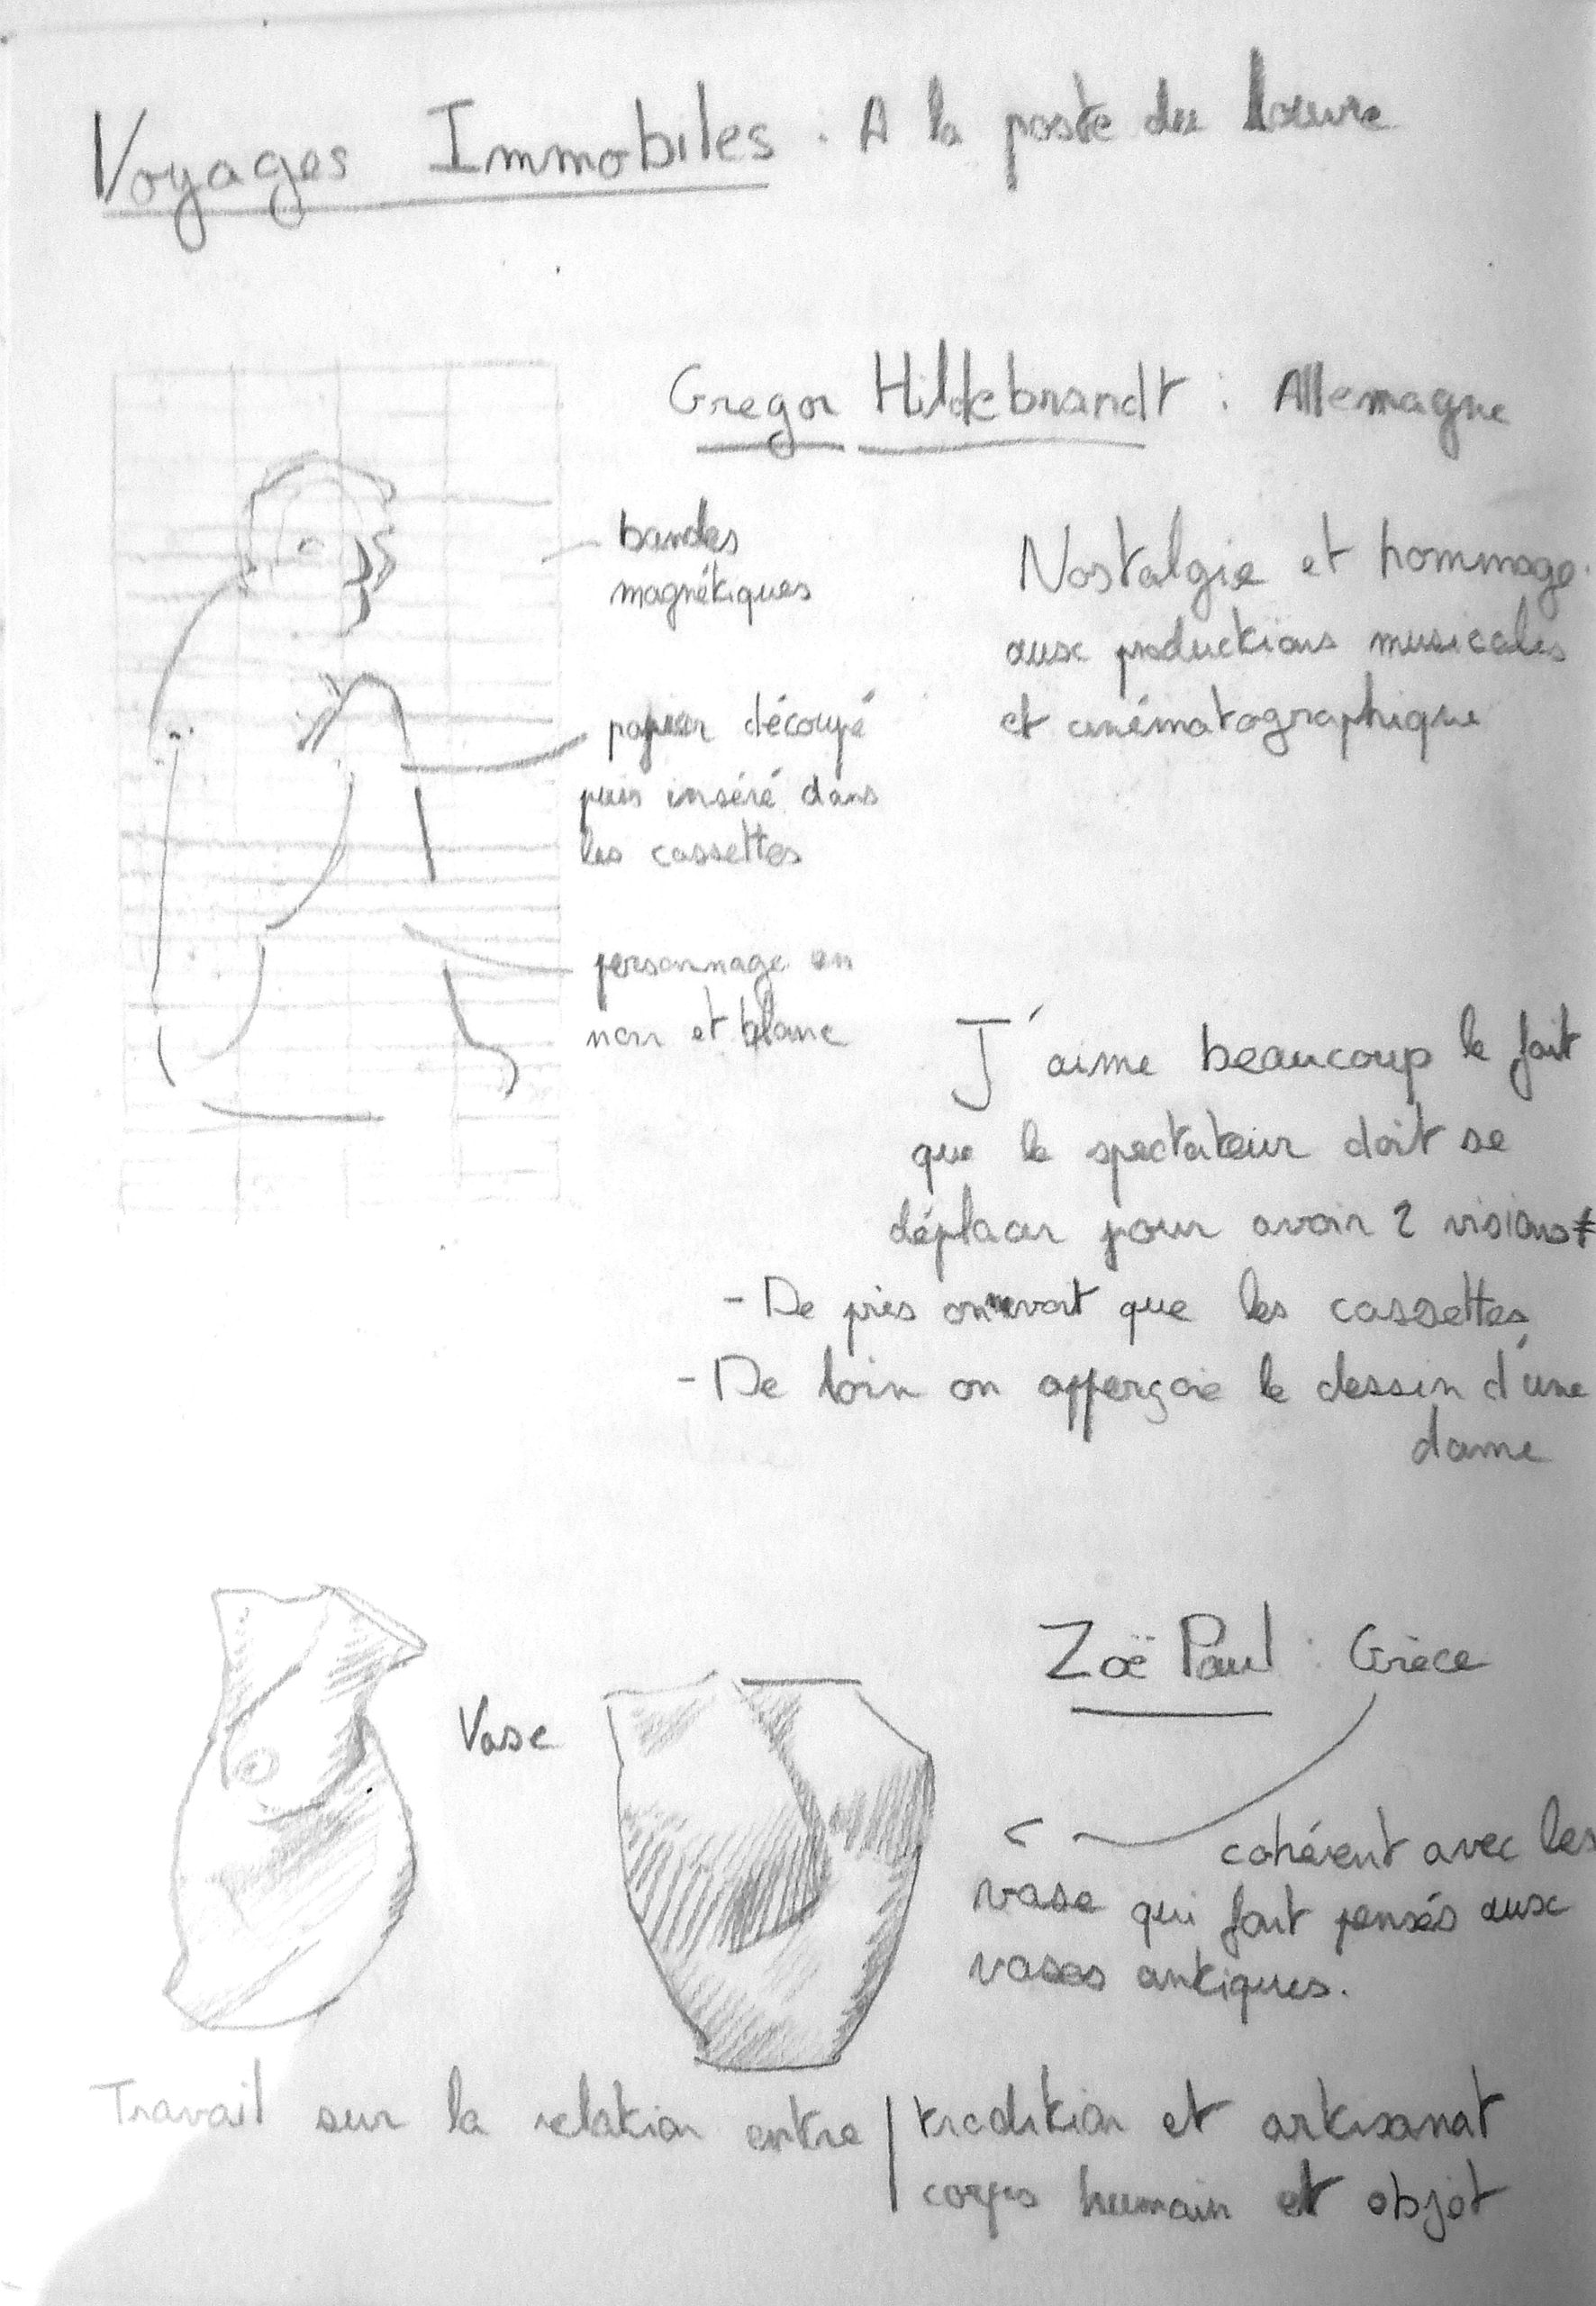 Voyages Immobiles : A la poste du Louvre
Gregor Hildebrandt : Allemagne
bandes
magnétiques
papier découpé
puis inséré dans
les cassettes
personnage en
noir et blanc
Nostalgie et hommage
aux productions musicales
et cinématographique
J'aime beaucoup le fait
que le spectateur doit se
déplacer pour avoir 2 visions ≠
- De près on ne voit que les cassettes
- De loin on apperçoie le dessin d'une
dame
Zoë Paul : Grèce
Vase
cohérent avec les
vase qui fait pensés aux
vases antiques.
Travail sur la relation entre | tradition et artisanat
corps humain et objet